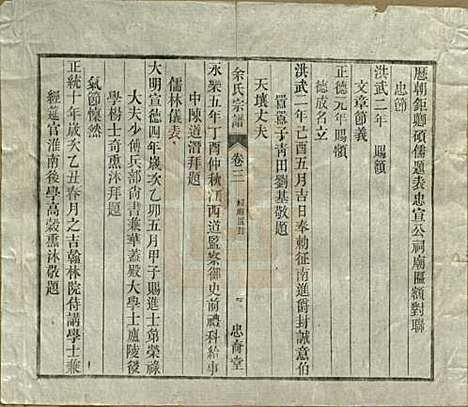 歷朝鉅卿碩儒題表忠宣公祠廟匾額對聯
忠節
洪武二年 賜額
文章節義
正德元年賜額
德成名立
洪武二年己酉五月吉日奉勅征南進爵封誠意伯
㗊㗊子青田劉基敬題
天壤丈夫
余氏宗譜 卷三 忠育堂
永樂五年丁酉仲秋江西道監察御史前禮科給事
中陳道潛拜題
儒林儀表
大明宣德四年歲次乙卯五月甲子賜進士第榮祿
大夫少傅兵部尚書兼華蓋殿大學士廬陵後
學楊士奇熏沐拜題
氣節懍然
正統十年歲次乙丑春月之吉翰林院侍講學士兼
經筵官淮南後學高穀熏沐敬題